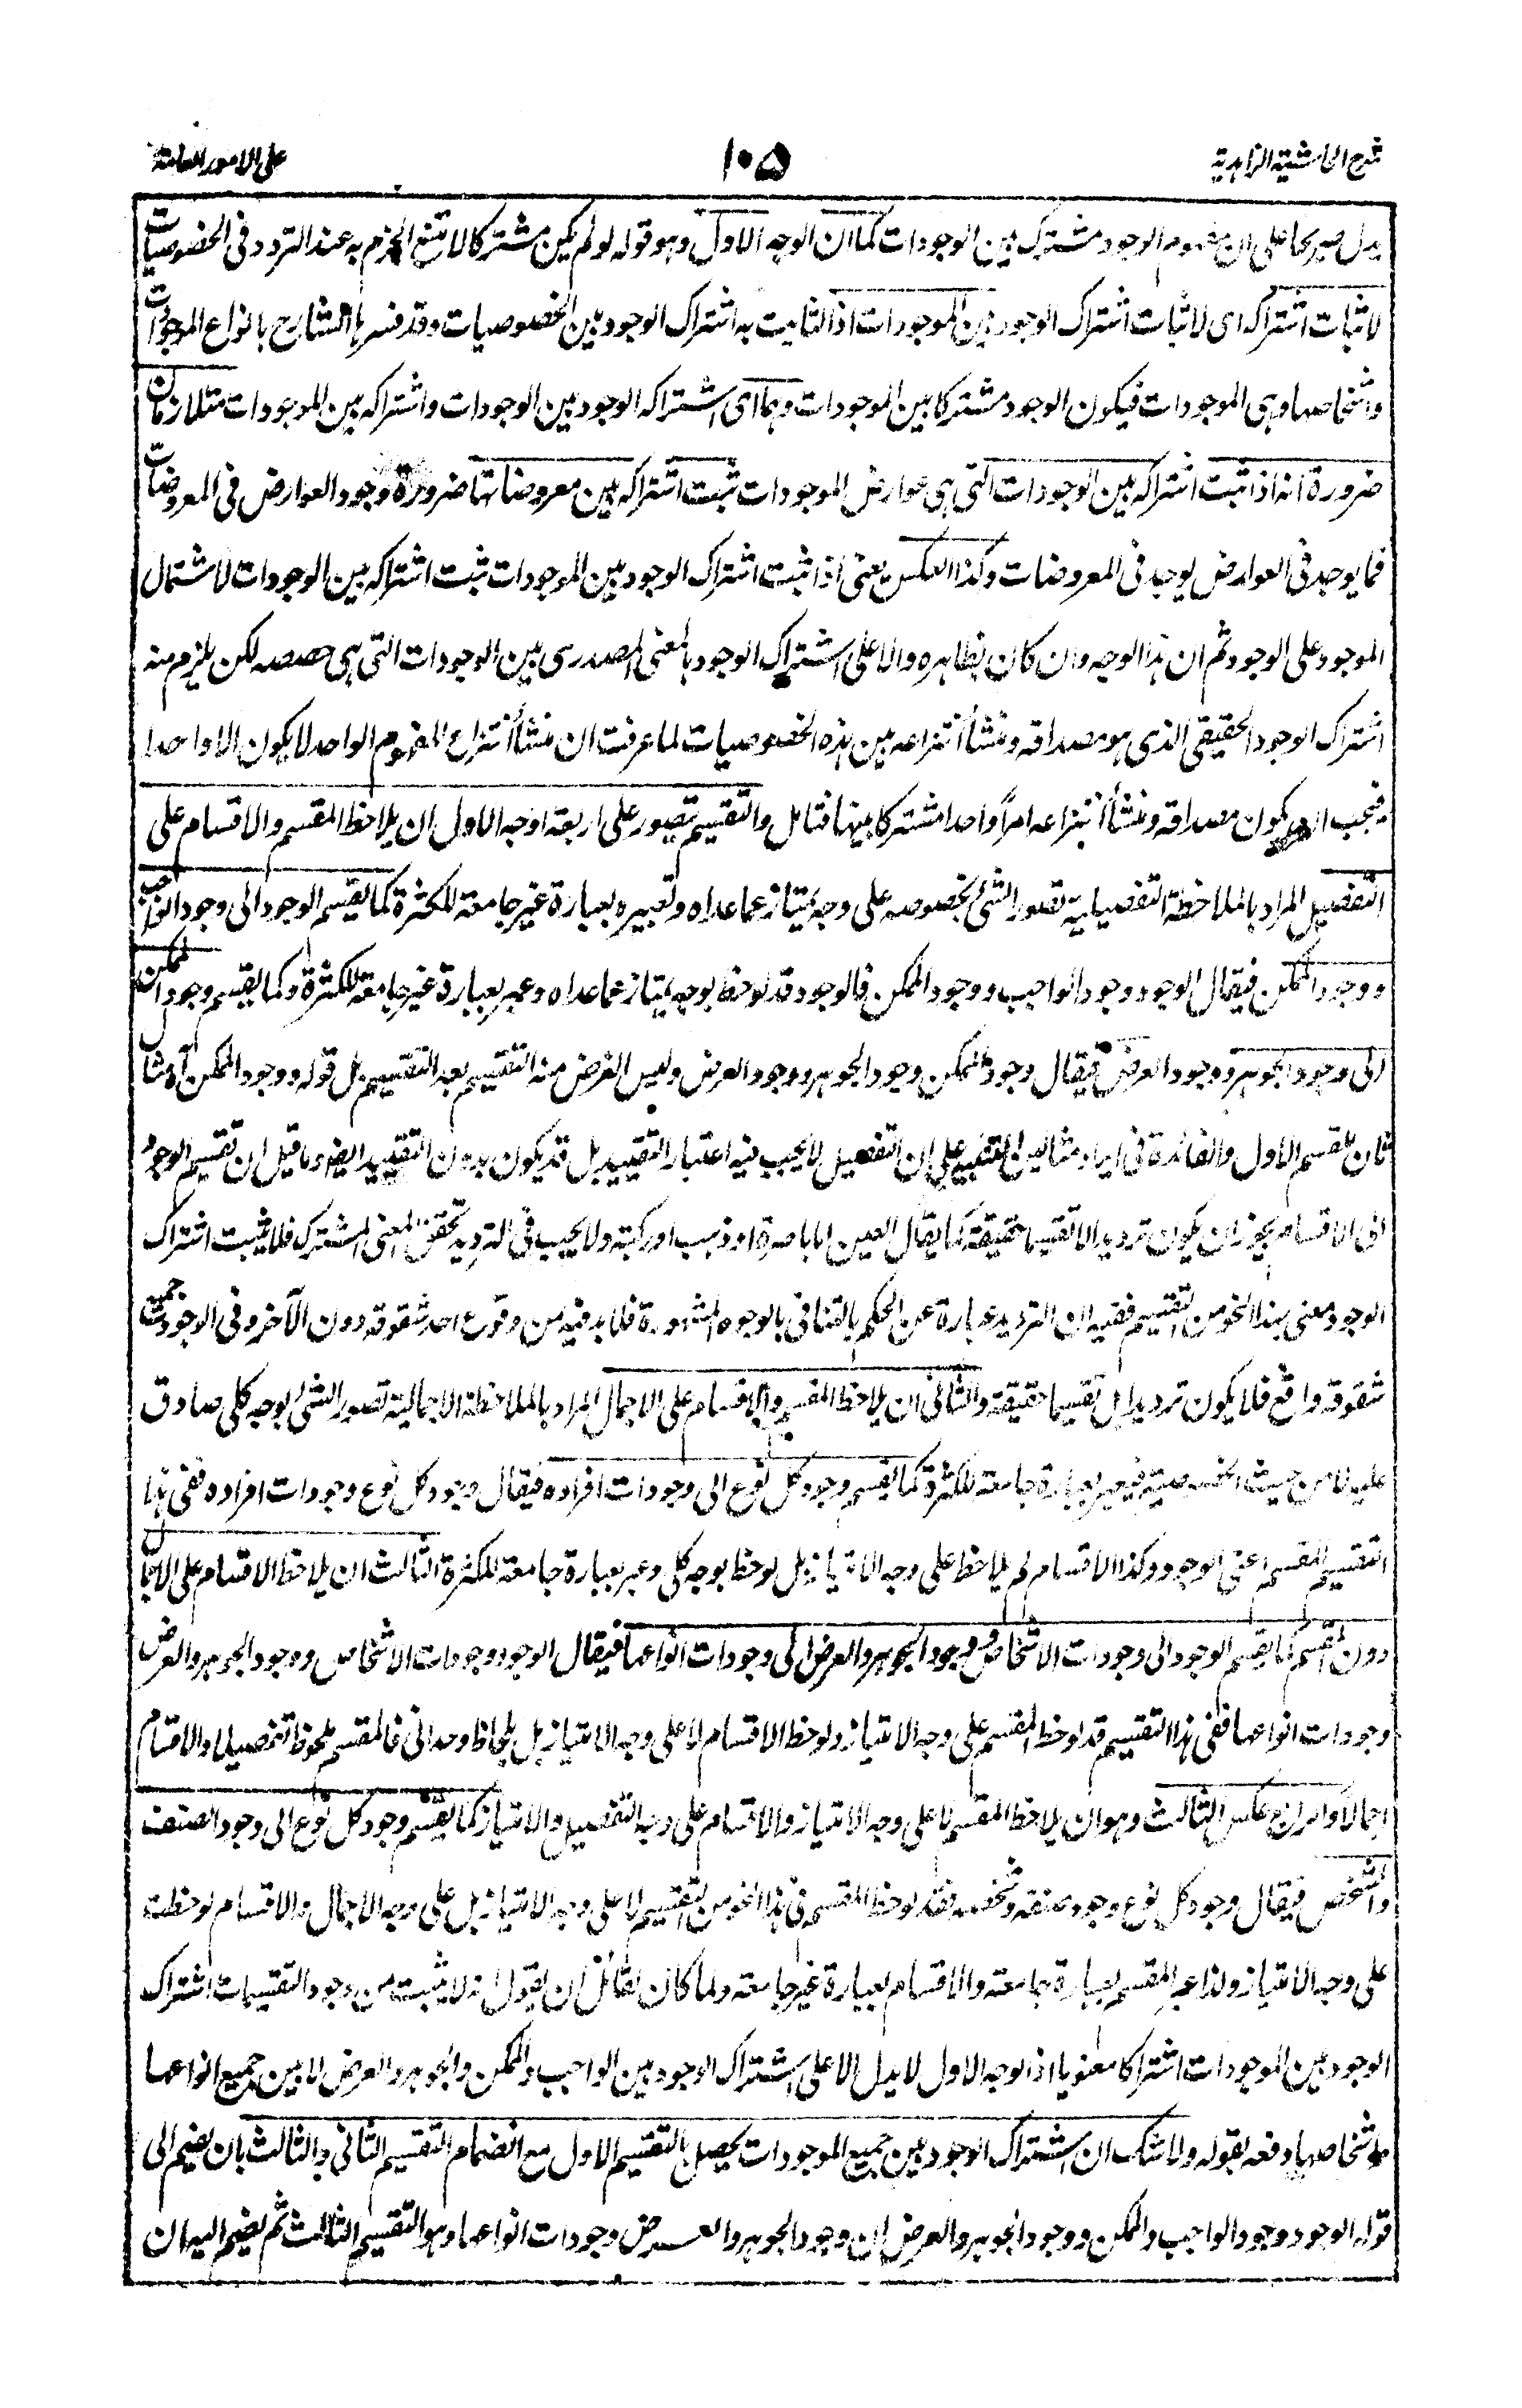 شرح الحاشية الزاهدية
١٠٥
على الامور العامة
يدل صريحا على ان مفهوم الوجود مشترك بين الوجودات كما ان الوجه الاول وهو قوله لو لم يكن مشتركا لامتنع الجزم به عند التردد فى الخصوصيات
لاثبات اشتراكه اى لاثبات اشتراك الوجود بين الموجودات اذ الثابت به اشتراك الوجود بين الخصوصيات وقد فسرها الشارح بانواع الموجودات
واشخاصها وهى الموجودات فيكون الوجود مشتركا بين الموجودات وهما اى اشتراك الوجود بين الوجودات واشتراكه بين الموجودات متلازمان
ضرورة انه اذا ثبت اشتراكه بين الوجودات التى هى عوارض الموجودات ثبت اشتراكه بين معروضاتها ضرورة وجود العوارض فى المعروضات
فما يوجد فى العوارض يوجد فى المعروضات وكذا العكس يعنى اذا ثبت اشتراك الوجود بين الموجودات ثبت اشتراكه بين الوجودات لاشتمال
الموجود على الوجود ثم ان هذا الوجه وان كان بظاهره دالا على اشتراك الوجود بالمعنى المصدرى بين الوجودات التى هى حصصه لكن يلزم منه
اشتراك الوجود الحقيقى الذى هو مصداقه ومنشأ انتزاعه بين هذه الخصوصيات لما عرفت ان منشأ انتزاع المفهوم الواحد لا يكون الا واحدا
فيجب ان يكون مصداقه ومنشأ انتزاعه امرا واحدا مشتركا بينها فتامل والتقسيم يتصور على اربعة اوجه الاول ان يلاحظ المقسم والاقسام على
التفصيل المراد بالملاحظة التفصيلية تصور الشئ بخصوصه على وجه يمتاز عما عداه وتعبيره بعبارة غير جامعة للكثرة كما يقسم الوجود الى وجود الواجب
ووجود الممكن فيقال الوجود وجود الواجب ووجود الممكن فالوجود قد لوحظ بوجه يمتاز عما عداه وعبر بعبارة غير جامعة للكثرة وكما يقسم وجود الممكن
الى وجود الجوهر ووجود العرض فيقال وجود الممكن وجود الجوهر ووجود العرض وليس الغرض منه التقسيم بعد التقسيم بل قوله ووجود الممكن آه مثال
ثان للقسم الاول والفائدة فى ايراد مثالين التنبيه على ان التفصيل لا يجب فيه اعتبار التقييد بل قد يكون بدون التقييد ايضا وما قيل ان تقسيم الوجود
الى الاقسام يجوز ان يكون ترديدا لا تقسيما حقيقة كما يقال العين اما باصرة او ذهب او ركبة ولا يجب فى الترديد تحقق المعنى المشترك فلا يثبت اشتراك
الوجود معنى بهذا النحو من التقسيم ففيه ان الترديد عبارة عن الحكم بالتنافى بالوجوه المشهورة فلا بد فيه من وقوع احد شقوقه دون الآخر وفى الوجود جميع
شقوقه واقع فلا يكون ترديدا بل تقسيما حقيقة والثانى ان يلاحظ المقسم والاقسام على الاجمال المراد بالملاحظة الاجمالية تصور الشئ بوجه كلى صادق
عليه لا من حيث الخصوصية فيعبر بعبارة جامعة للكثرة كما يقسم وجود كل نوع الى وجودات افراده فيقال وجود كل نوع وجودات افراده ففى هذا
التقسيم المقسم اعنى الوجود وكذا الاقسام لم يلاحظ على وجه الامتياز بل لوحظ بوجه كلى وعبر بعبارة جامعة للكثرة الثالث ان يلاحظ الاقسام على الاجمال
دون المقسم كما يقسم الوجود الى وجودات الاشخاص ووجود الجوهر والعرض الى وجودات انواعها فيقال الوجود وجودات الاشخاص ووجود الجوهر والعرض
وجودات انواعها ففى هذا التقسيم قد لوحظ المقسم على وجه الامتياز ولوحظ الاقسام لا على وجه الامتياز بل بلحاظ وحدانى فالمقسم ملحوظ تفصيلا والاقسام
اجمالا والرابع عكس الثالث وهو ان يلاحظ المقسم لا على وجه الامتياز والاقسام على وجه التفصيل والامتياز كما يقسم وجود كل نوع الى وجود الصنف
والشخص فيقال وجود كل نوع وجود صنفه وشخصه فقد لوحظ المقسم فى هذا النحو من التقسيم لا على وجه الامتياز بل على وجه الاجمال والاقسام لوحظت
على وجه الامتياز ولذا عبر المقسم بعبارة جامعة والاقسام بعبارة غير جامعة ولما كان لقائل ان يقول انه لا يثبت من وجود التقسيمات اشتراك
الوجود بين الموجودات اشتراكا معنويا اذ الوجه الاول لا يدل الا على اشتراك الوجود بين الواجب والممكن والجوهر والعرض لا بين جميع انواعها
واشخاصها دفعه بقوله ولا شك ان اشتراك الوجود بين جميع الموجودات يحصل بالتقسيم الاول مع انضمام التقسيم الثانى والثالث بان يضم الى
قوله الوجود وجود الواجب والممكن ووجود الجوهر والعرض ان وجود الجوهر والعرض وجودات انواعها وهو التقسيم الثالث ثم يضم اليه ان